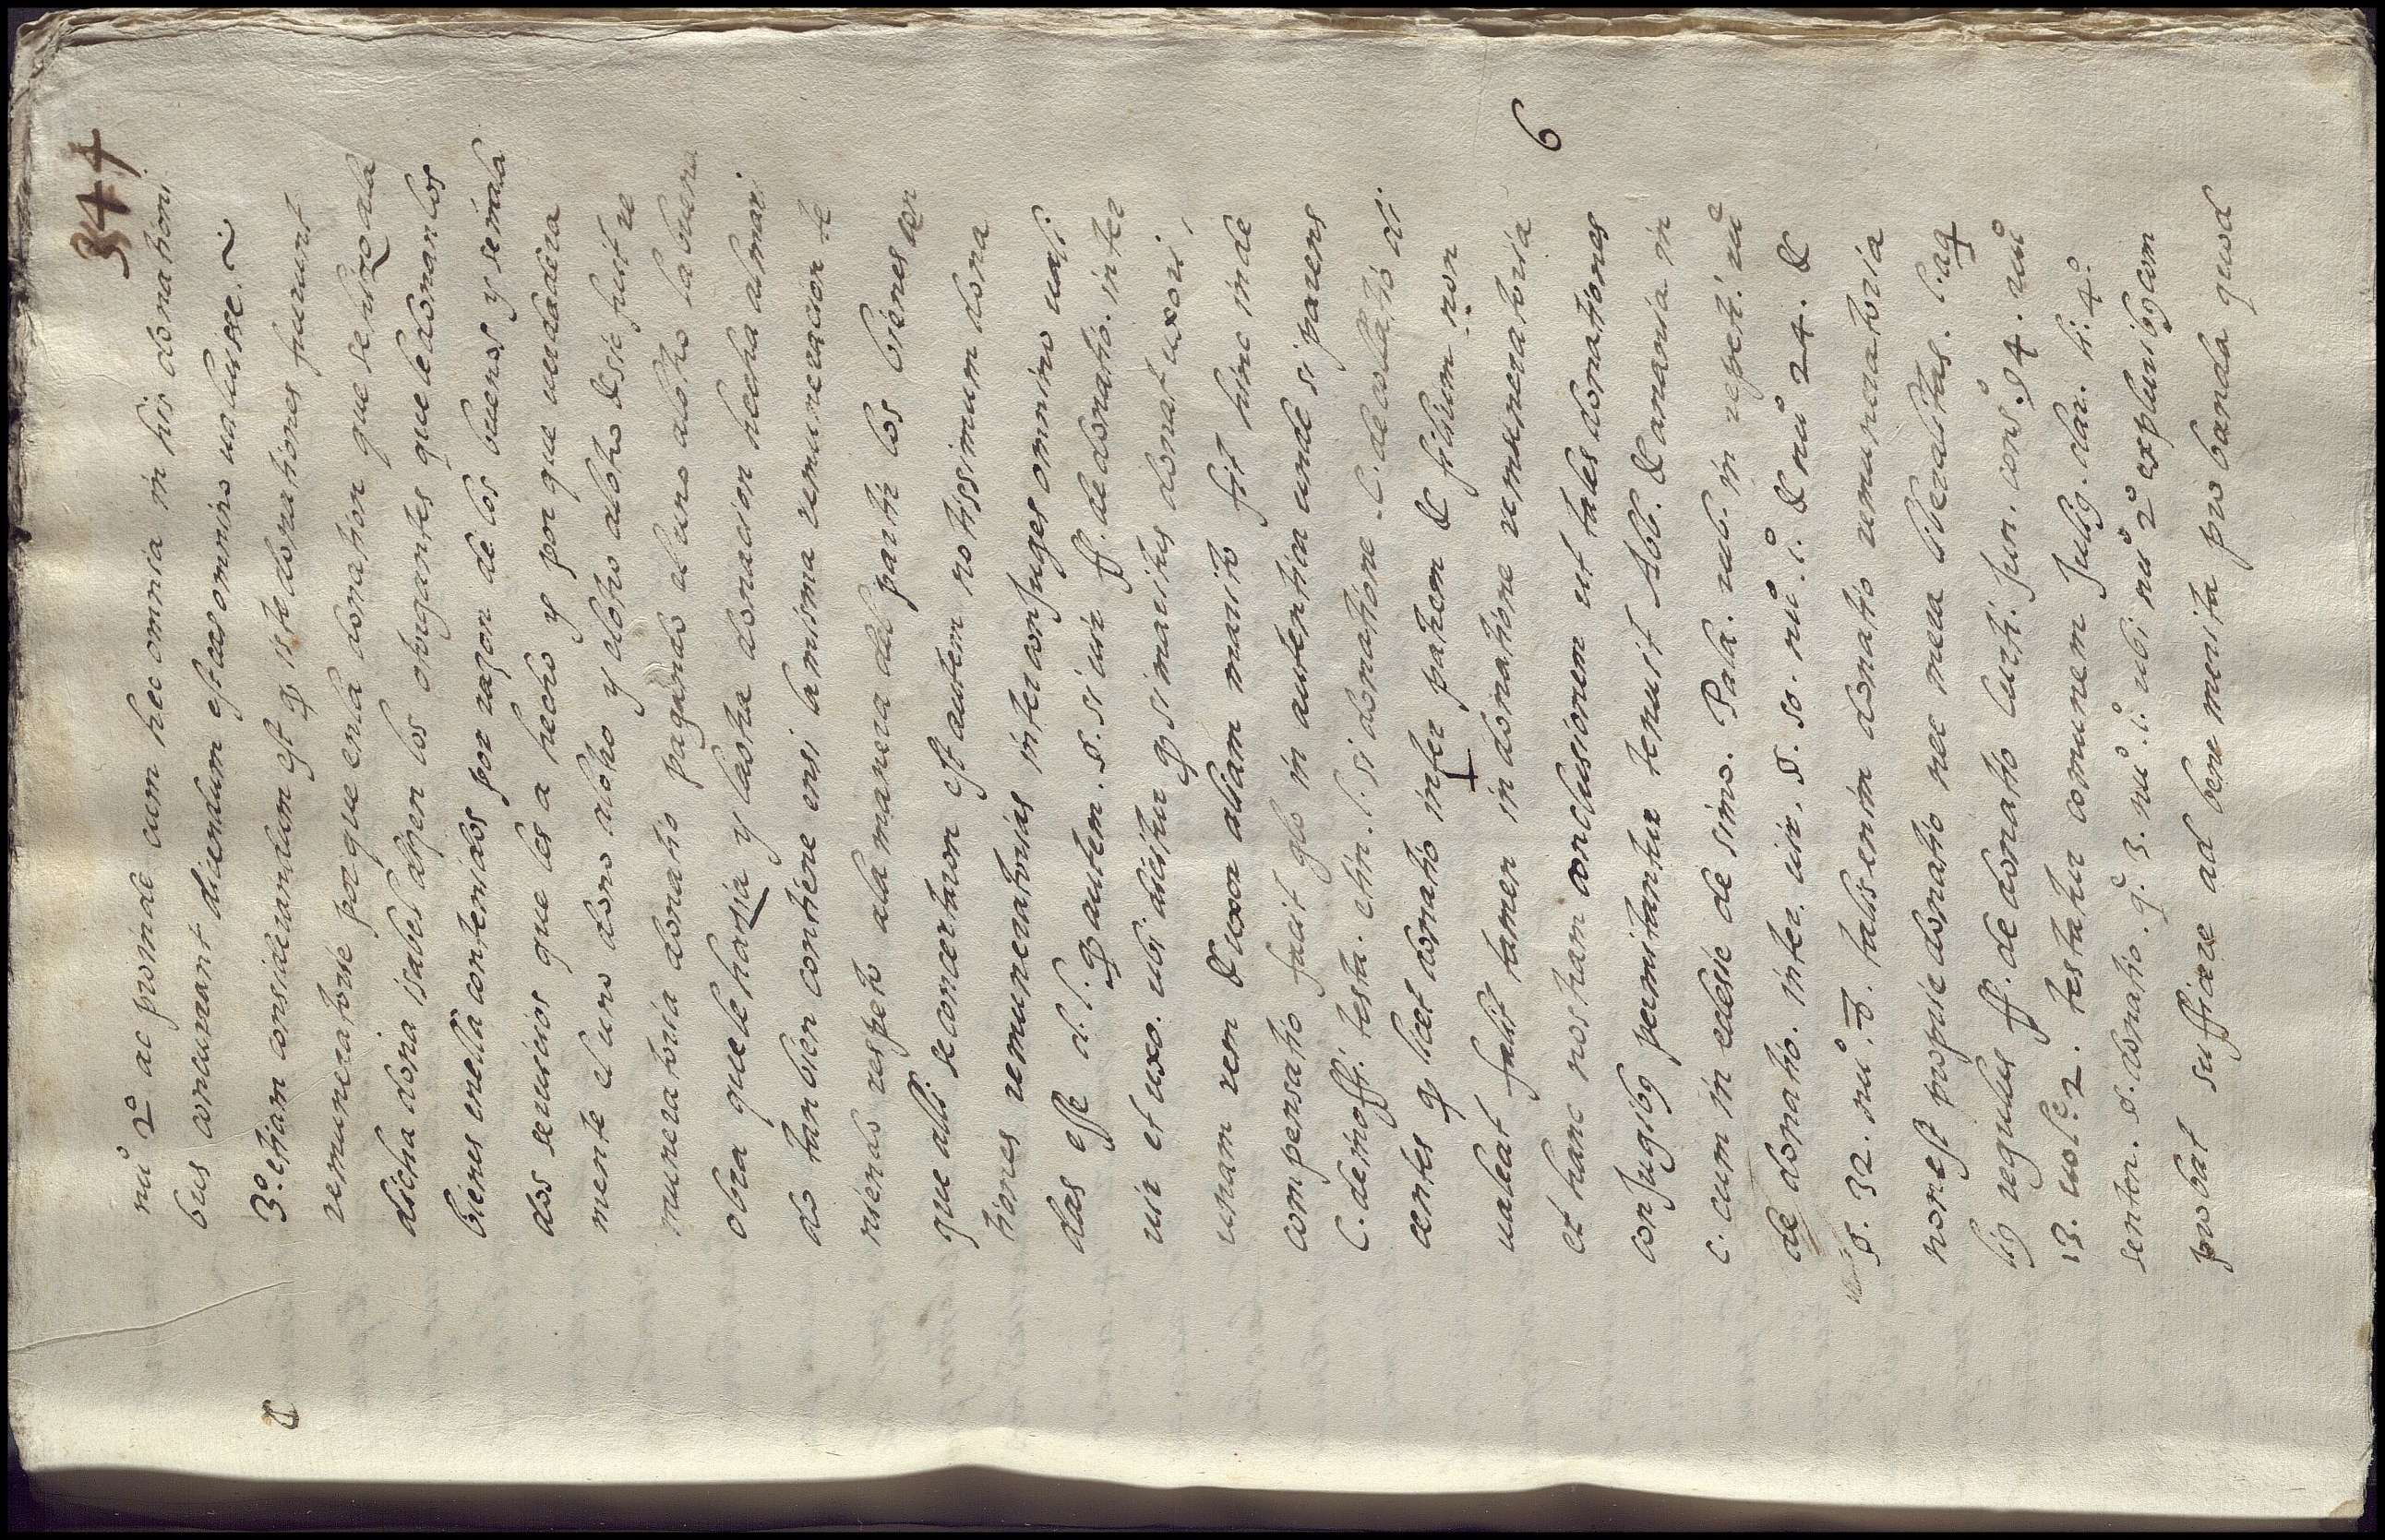 344
nuº 2º ac proinde cum hec omnia in his donationi
bus concurrant dicendum est eas omnino ualuisse.~
3º. etiam considerandum est q̃ iste donationes fuerunt
remuneratorie porque enla donation que se hizo ala
dicha dona isabel dizen los otorgantes que le donan los
bienes enella contenidos por razon de los buenos y senala
dos seruicios que les a hecho y por que uerdadera
mente el uno dono alotro y elotro alotro & sic fuit re
muneratoria donatio pagando el uno alotro la buena
obra que le hazia y laotra donacion hecha al mari
do tanbien contiene ensi la misma remuneracion te
niendo respeto ala manera del partir los bienes en
que alli se concertaron est autem notissimum dona
tiones remuneratorias inter conjuges omnino uali
das esse d. l. q̃ autem. §. si uir ff. de donatio. inter
uir et uxo. ubi dicitur q̃ si maritus donat uxori
unam rem & uxor aliam marito fit hinc inde
compensatio facit glo in autentica unde si parens
C. de inoff. testa. et in. l. si donatione. C. de collatio di
centes q̃ licet donatio inter patrem & filium non
ualeat fallit tamen in donatione remuneratoria
et hanc nostram conclusionem ut tales donationes
conjugibꝯ permitantur tenuit Abb. & anania in
c. cum in eclesie de simo. Pala. rub. in repeti. ru
de donatio. inter. uir. §. 50. nuº. i. & nuº 24. &
§. 32. nuº. talis enim donatio remuneratoria
non est proprie donatio nec mera liberalitas. l. aq
liꝯ regulus ff. de donatio Curti. Jun. consº. 94. nuº
13. uolº. 2. testatur comunem Juliꝯ. clar. li. 4º
senten. §. donatio. qº. 3. nuº. i. ubi nuº 2º ex pluribꝯ com
probat sufficere ad bene merita pro banda quod
6